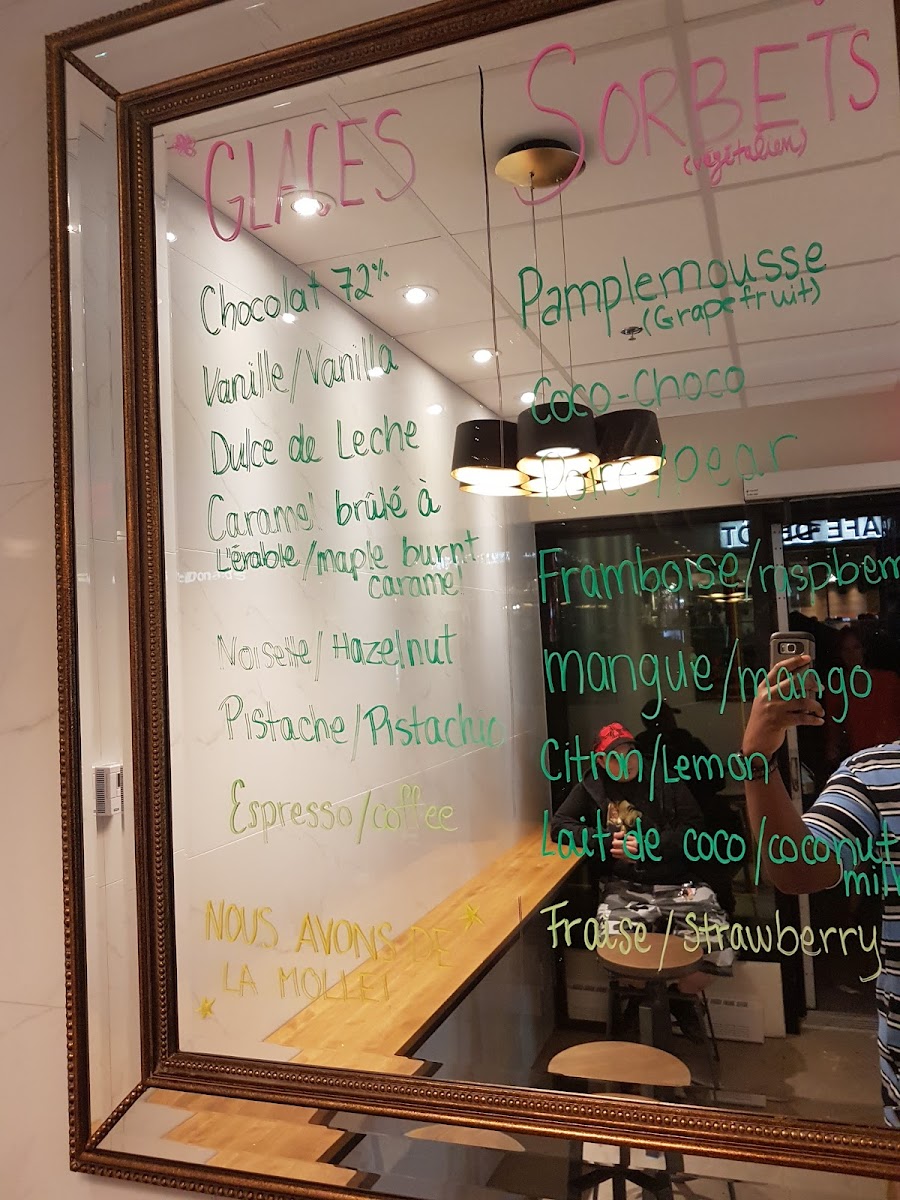 GLACES
Chocolat 72%
Vanille/Vanilla
Dulce de Leche
Caramel brûlé à
L'érable/maple burnt
caramel
Noisette/Hazelnut
Pistache/Pistachio
Espresso/coffee
NOUS AVONS DE
LA MOLLE!
SORBETS
(végétalien)
Pamplemousse
(Grapefruit)
Coco-Choco
Poire/pear
Framboise/raspberr
mangue/mango
Citron/Lemon
Lait de coco/coconut
milk
Fraise/Strawberry